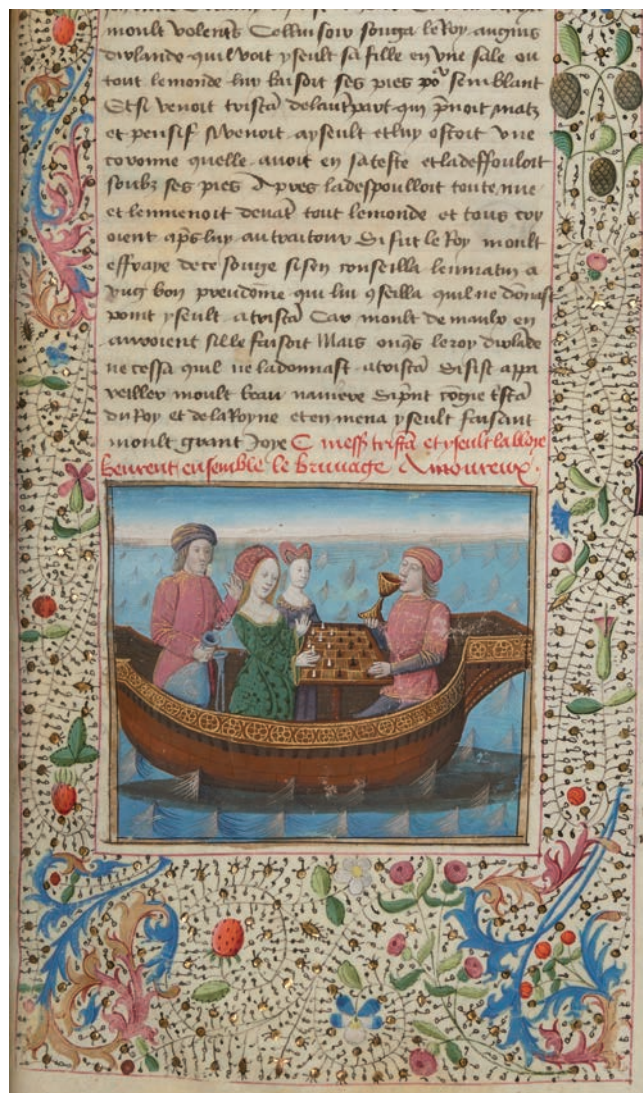 moult volent's Celluisoir songa le Roy anguis
dirlande quil voit yseult sa fille en vne sale ou
tout lemonde luy baisoit ses pies po' semblant
Et si venoit trista delautpart qui p̄noit matz
et pensif si venoit a yseult et luy ostoit vne
coronne quelle auoit en sa teste et la deffouloit
soubz ses pies Apres la despoulloit toute nue
et lenmenoit deuāt tout lemonde et tous cry
oient ap̄s luy au traitour Si fut le Roy moult
effraye de ce songe si sen conseilla lenmatin a
vng bon preudōme qui lui 9seilla quil ne dōnast
point yseult a tristā Car moult de maulx en
auroient sille faisoit Mais onq̄s le roy dirlāde
ne cessa quil ne la donnast a tristā Si fist appa
reiller moult beau nauire Si p̄nt cōgie tstā
du Roy et de la Royne et en mena yseult faisant
moult grant Joye C mess' tristā et yseult la bloye
beurent ensemble le bruuage Amoureux.